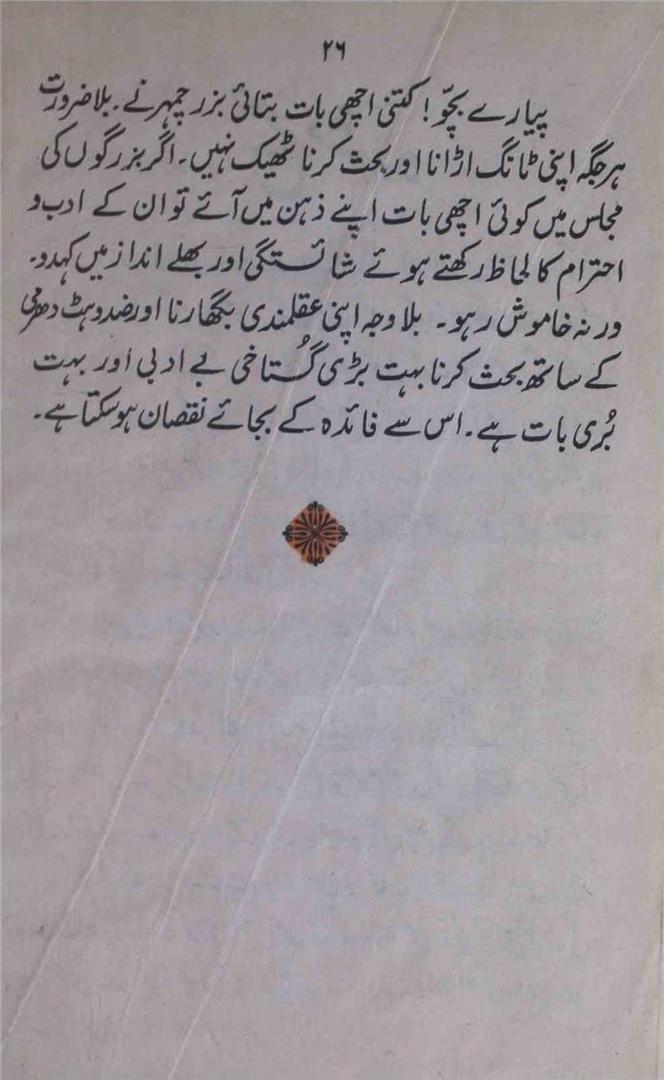 ۲۶
پیارے بچّو! کتنی اچھی بات بتائی بزرچمہر نے۔ بلا ضرورت
ہر جگہ اپنی ٹانگ اڑانا اور بحث کرنا ٹھیک نہیں۔ اگر بزرگوں کی
مجلس میں کوئی اچھی بات اپنے ذہن میں آئے تو ان کے ادب و
احترام کا لحاظ رکھتے ہوئے شائستگی اور بھلے انداز میں کہدو۔
ورنہ خاموش رہو۔ بلا وجہ اپنی عقلمندی بگھارنا اور ضد و ہٹ دھرمی
کے ساتھ بحث کرنا بہت بڑی گُستاخی بے ادبی اور بہت
بُری بات ہے۔ اس سے فائدہ کے بجائے نقصان ہو سکتا ہے۔